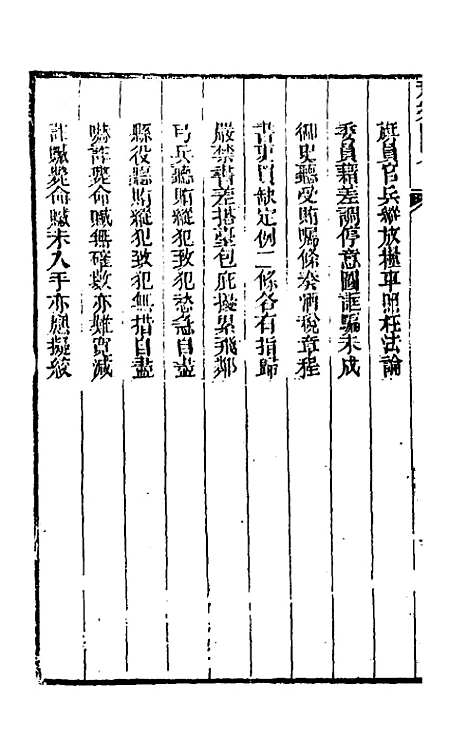 旗員官兵縱放攬車照枉法論
委員藉差調停意圖誆騙未成
御史聽受賄囑條奏酒稅章程
書吏買缺定例二條各有指歸
嚴禁書差搭臺包庇擾累飛鄰
弓兵聽賄縱犯致犯愁急自盡
縣役聽賄縱犯致犯無措自盡
嚇詐斃命贓無確數亦難寬減
詐贓斃命贓未入手亦應擬絞